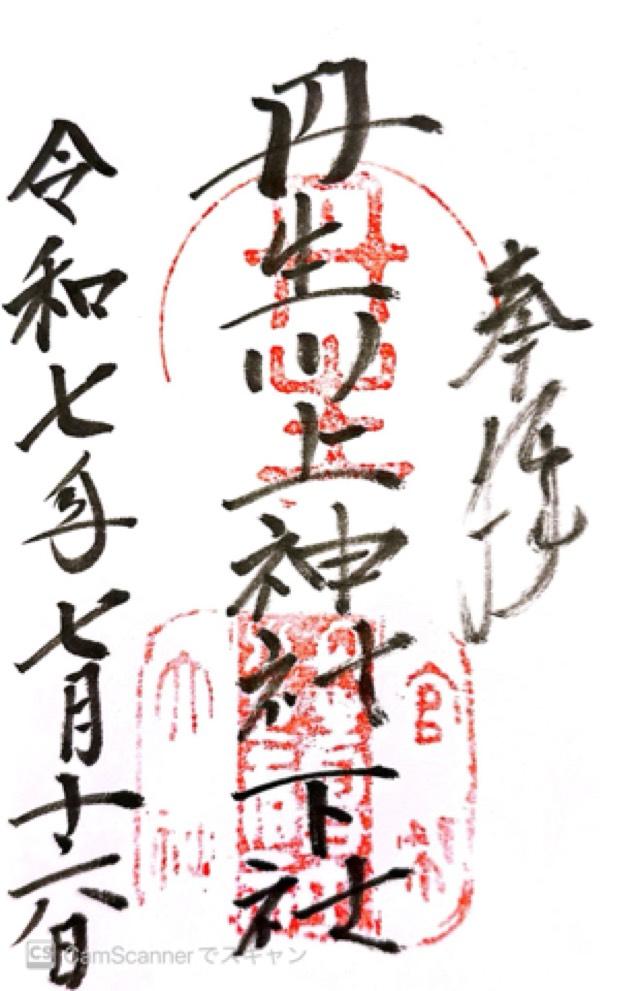 奉拝
丹生川上神社下社
令和七年七月十六日
官
大
社
CamScannerでスキャン